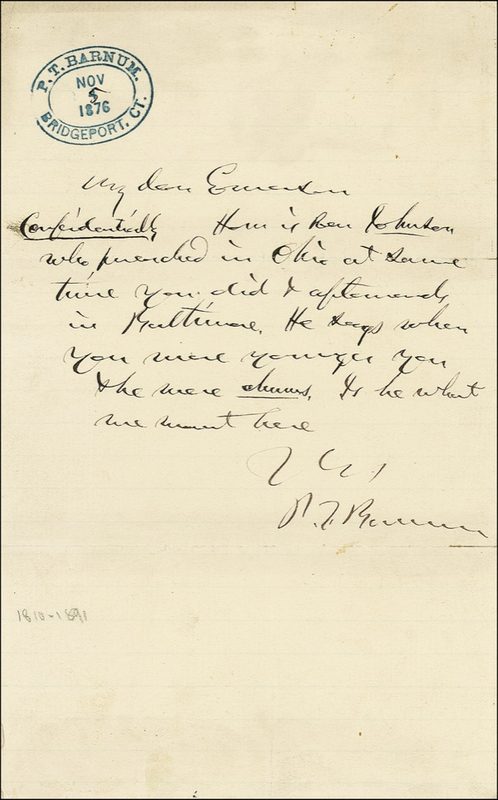 P. T. BARNUM.
NOV
5
1876
BRIDGEPORT, CT.
My dear Emerson
Confidentially How is Rev Johnson
who preached in Ohio at same
time you did & afterwards
in Baltimore. He says when
you were younger you
& he were chums. Is he what
we want here
P. T. Barnum
1810-1891